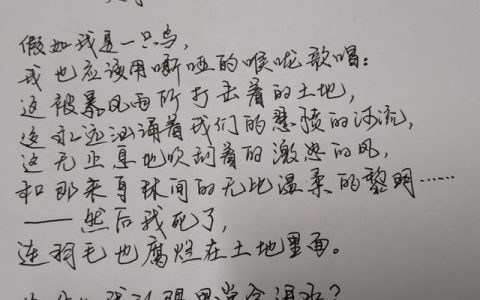 假如我是一只鸟,
我也应该用嘶哑的喉咙歌唱:
这被暴风雨所打击着的土地,
这永远汹涌着我们的悲愤的河流,
这无止息地吹刮着的激怒的风,
和那来自林间的无比温柔的黎明……
——然后我死了,
连羽毛也腐烂在土地里面。